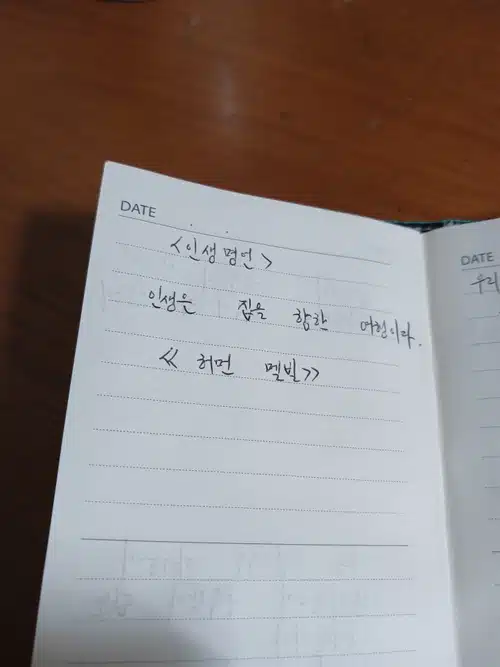 DATE
<인생명언>
인생은 집을 향한 여행이다.
<<허먼 멜빌>>
DATE
우리